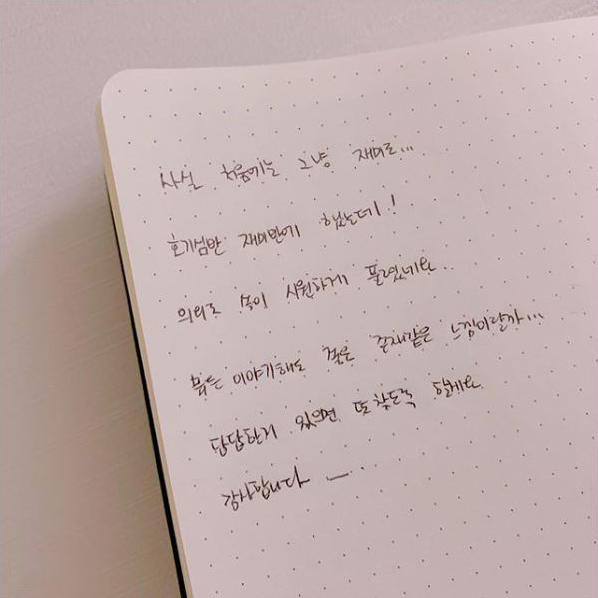 사실 처음에는 그냥 재미로...
호기심반 재미반에 했는데!
의외로 속이 시원하게 풀렸네요
이야기해도 좋은 존재같은 느낌이랄까...
답답한게 있으면 또 찾도록 할게요
감사합니다